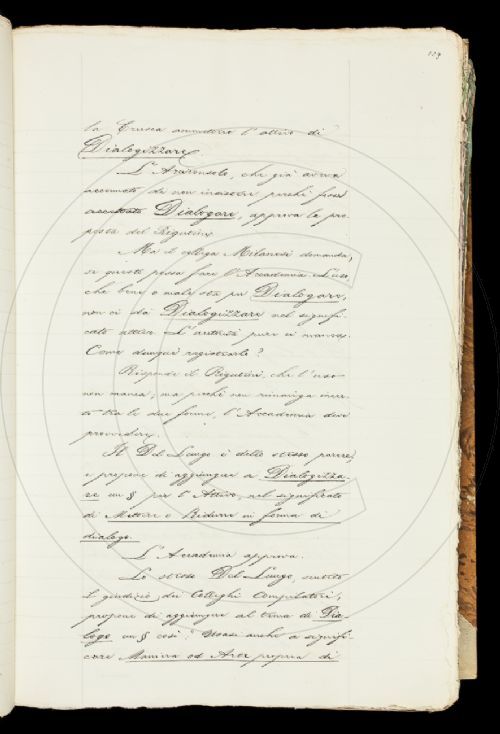 109
la Crusca ammettere l'attivo di
Dialogizzare.
L'Arciconsolo, che già aveva
accennato di non insistere perché fosse
accettato Dialogare, approva la pro-
posta del Rigutini.
Ma il collega Milanesi domanda,
se questo possa fare l'Accademia. L'uso
che bene o male sta per Dialogare,
non ci dà Dialogizzare nel signifi-
cato attivo. L'autorità pure ci manca.
Come dunque registrarlo?
Risponde il Rigutini, che l'uso
non manca; ma perché non rimanga incer-
to tra le due forme, l'Accademia deve
provvedere.
Il Del Lungo è dello stesso parere,
e propone di aggiungere a Dialogizza-
re un § per l'Attivo, nel significato
di Mettere o Ridurre in forma di
dialogo.
L'Accademia approva.
Lo stesso Del Lungo, sentito
il giudizio dei Colleghi Compilatori,
propone di aggiungere al tema di Dia-
logo un § così: Usasi anche a signifi-
care Maniera od Arte propria di